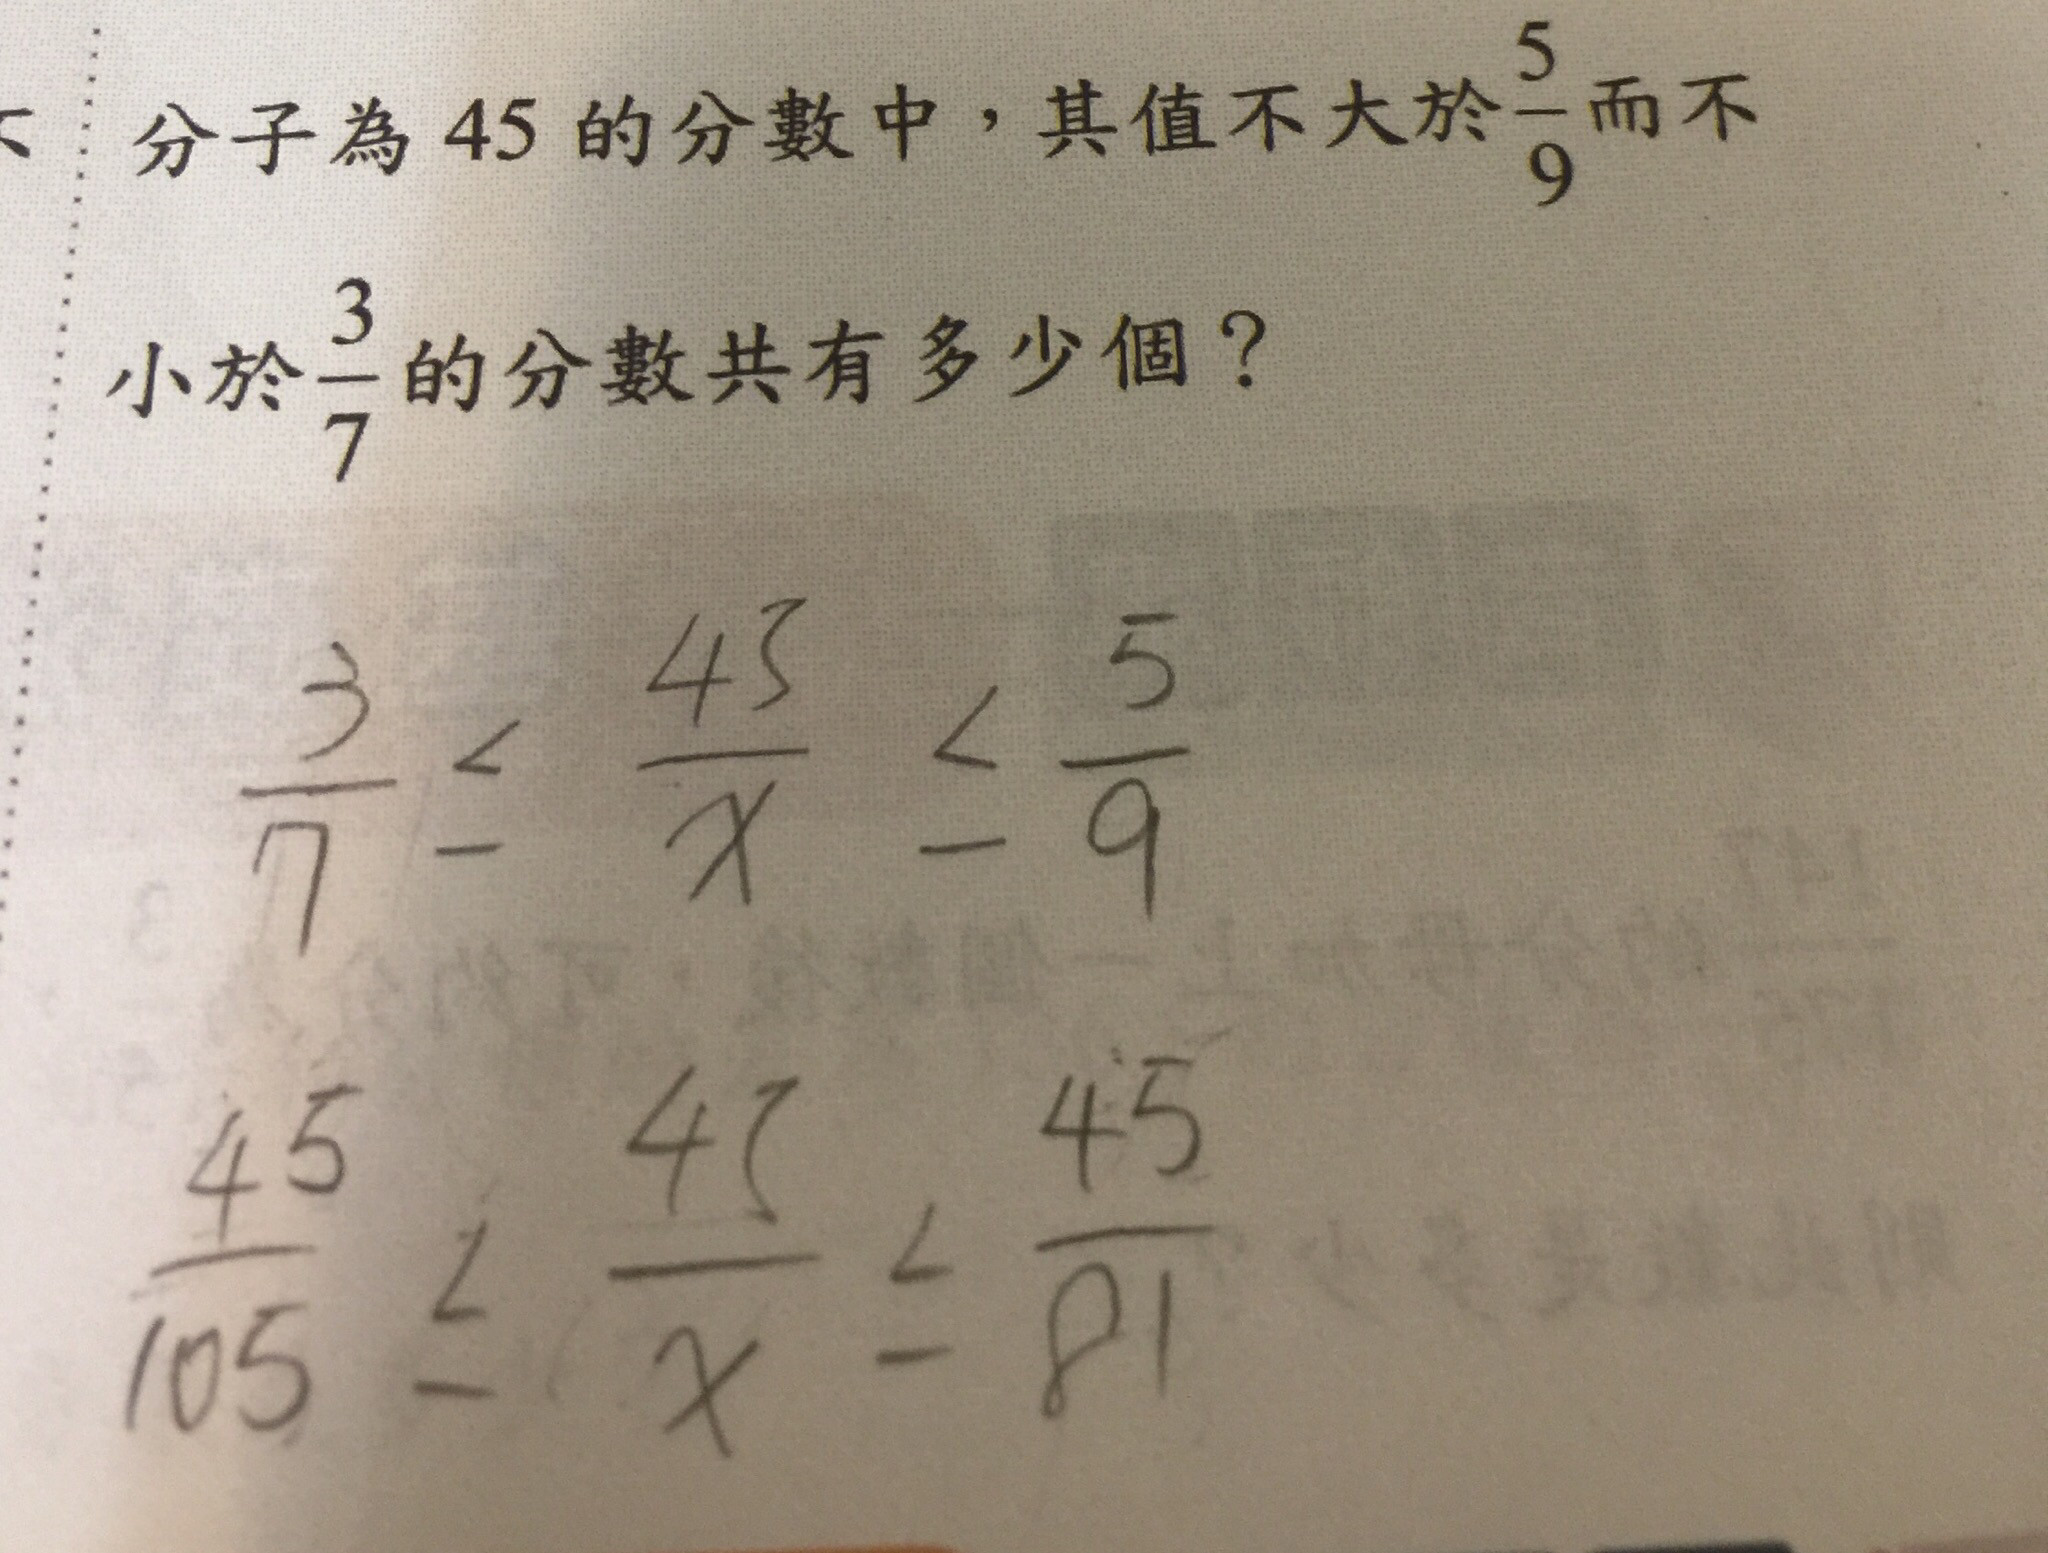 分子為 45 的分數中，其值不大於 5/9 而不
小於 3/7 的分數共有多少個？
3/7 ≤ 45/x ≤ 5/9
45/105 ≤ 45/x ≤ 45/81